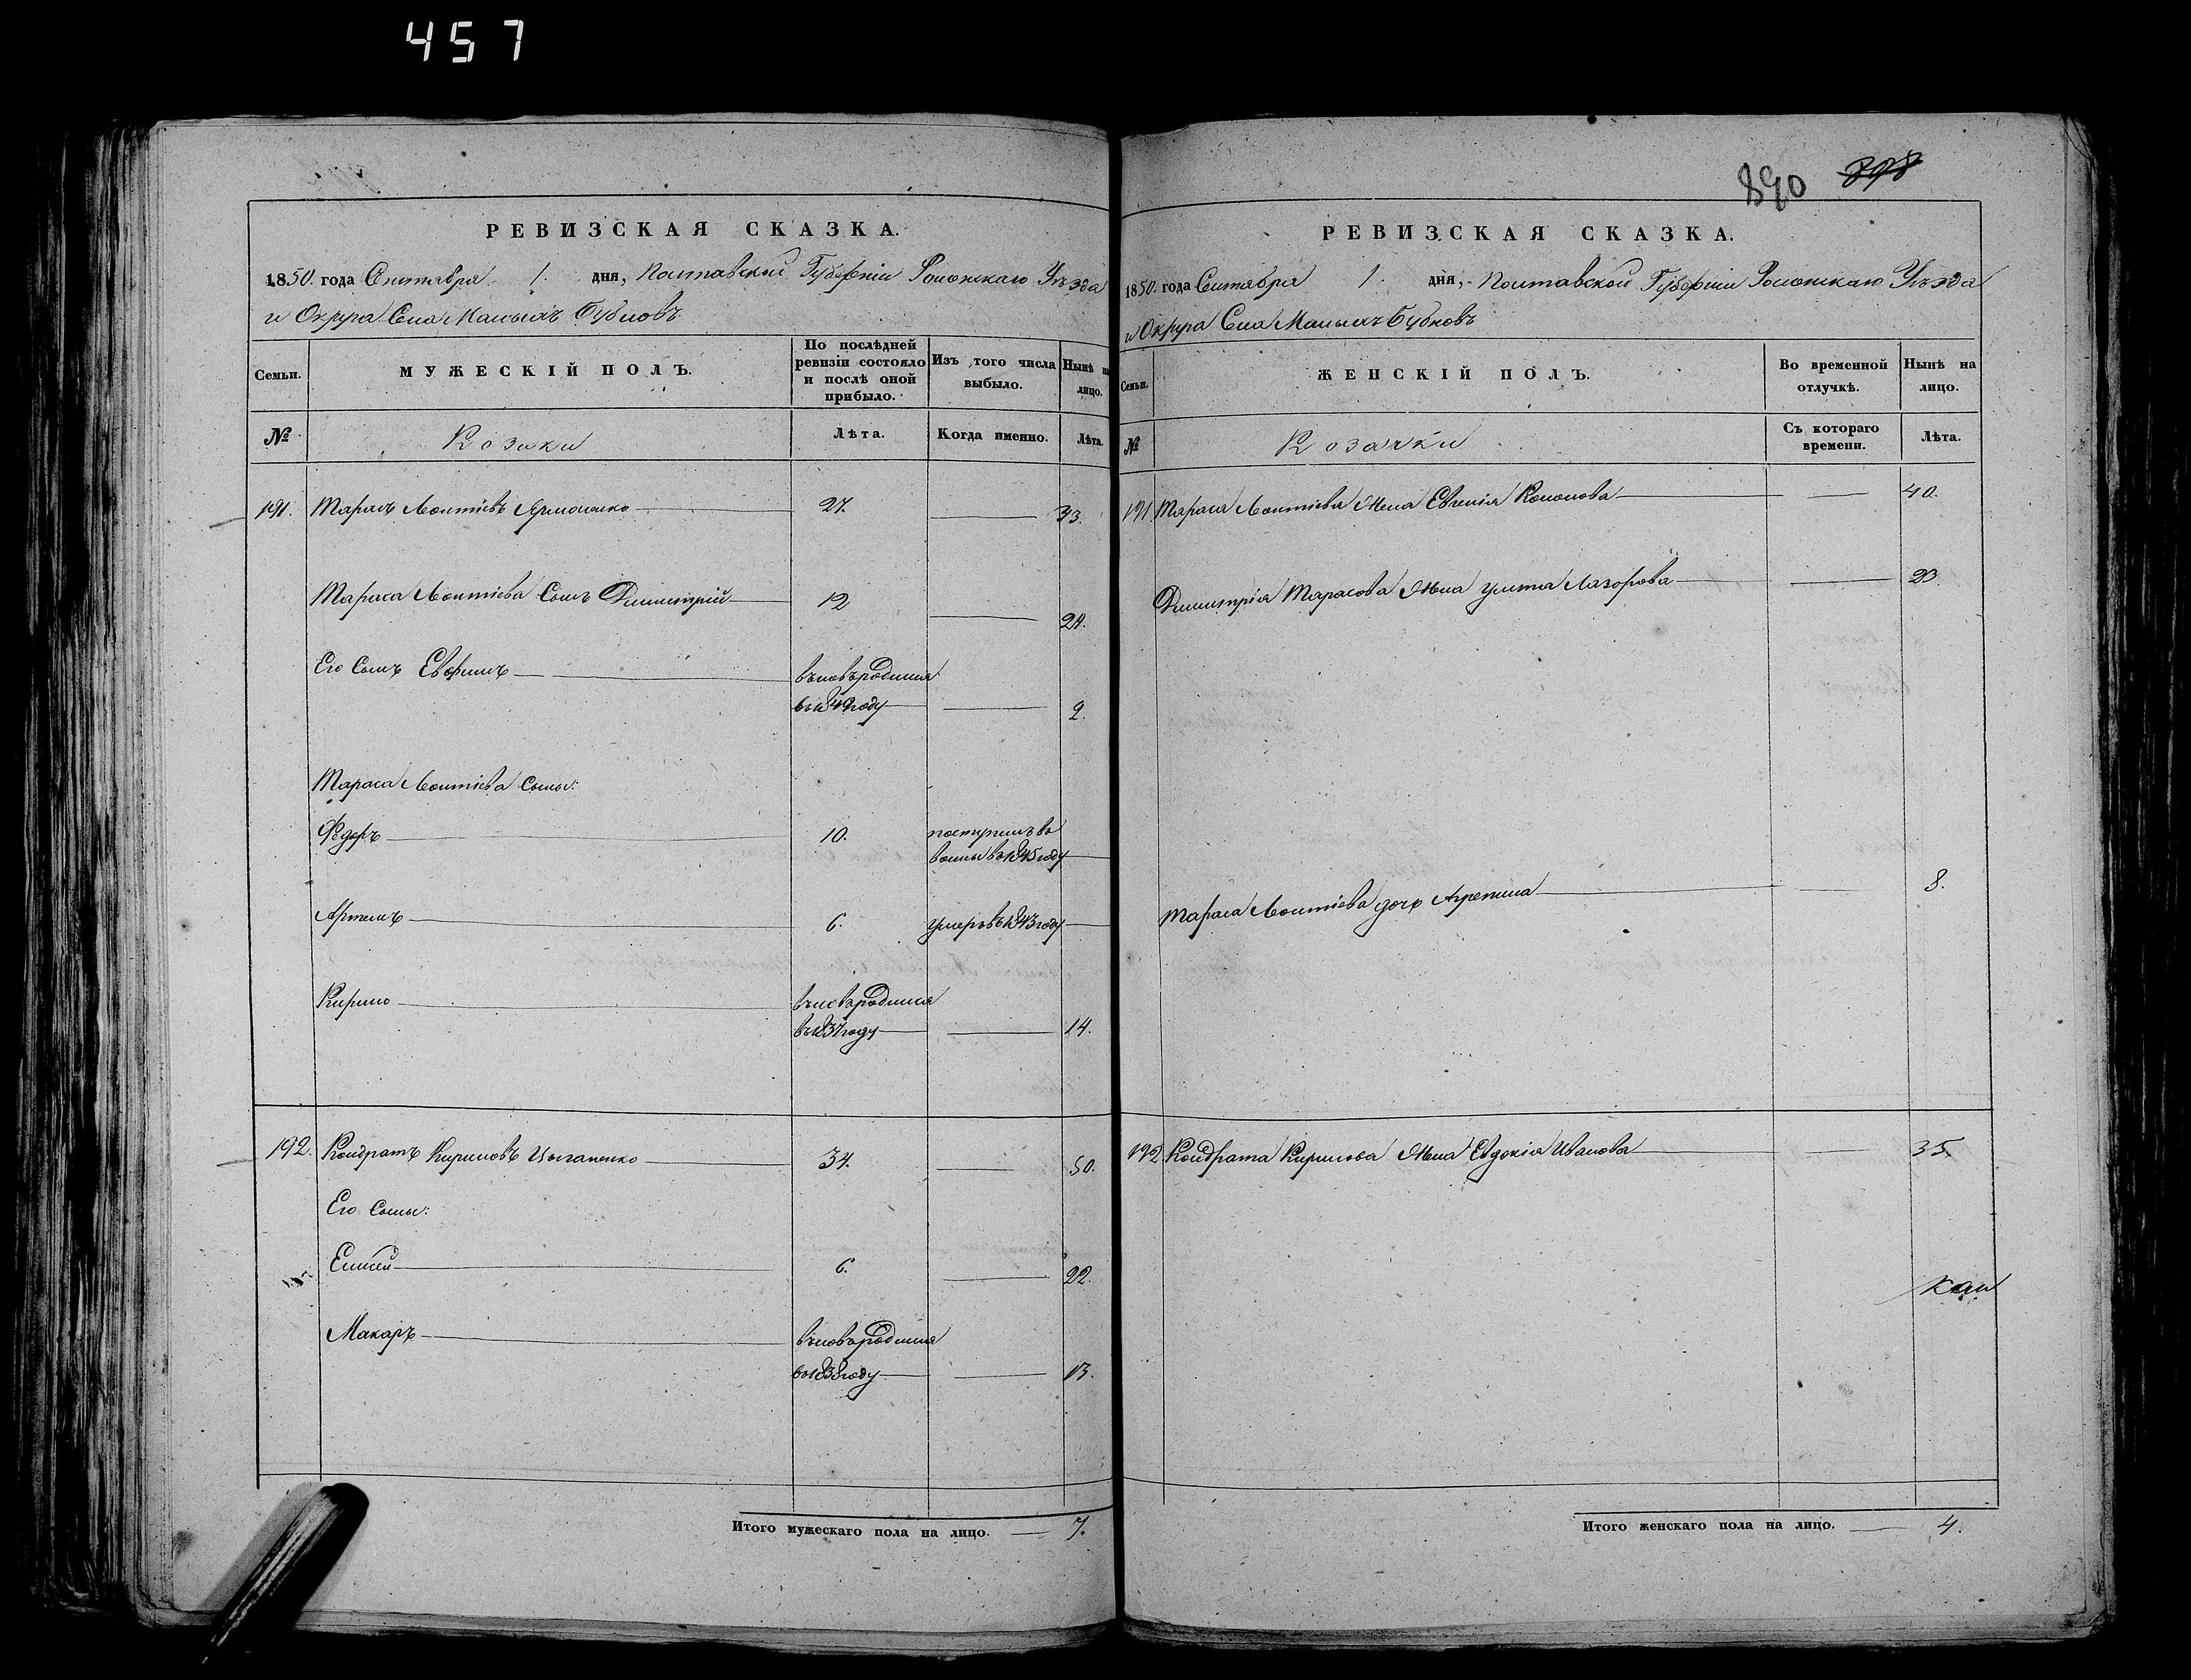 457
РЕВИЗСКАЯ СКАЗКА.
1850. года Сентября 1. дня, Полтавской Губерніи Роменскаго Уѣзда
и Округа Села Малыхъ Бубновъ.
Семьи.
МУЖЕСКІЙ ПОЛЪ.
По послѣдней ревизіи состояло и послѣ оной прибыло.
Изъ того числа выбыло.
Нынѣ на лицо.
№
Козаки
Лѣта.
Когда именно.
Лѣта.
191. Тарасъ Леонтіевъ Ярмоленко 27. 43.
Тараса Леонтіева Сынъ Димитрій 12 24.
Его Сынъ Евфимъ вновь родился
въ 1849 году 2.
Тараса Леонтіева Сыны:
Федоръ 10. поступилъ въ
воины въ 1845 году
Артемъ 6. умеръ въ 1843 году
Кирило вновь родился
въ 1837 году 14.
192. Кондратъ Кириловъ Цыганенко 34. 50.
Его Сыны:
Елисей 6. 22.
Макаръ вновь родился
въ 1838 году 13.
Итого мужескаго пола на лицо. 7.
890 898
РЕВИЗСКАЯ СКАЗКА.
1850. года Сентября 1. дня, Полтавской Губерніи Роменскаго Уѣзда
и Округа Села Малыхъ Бубновъ
Семьи.
ЖЕНСКІЙ ПОЛЪ.
Во временной отлучкѣ.
Нынѣ на лицо.
№
Козачки
Съ котораго времени.
Лѣта.
191. Тараса Леонтіева Жена Евгенія Кононова 40.
Димитрія Тарасова Жена Улита Лазорова 23.
Тараса Леонтіева дочь Агрепина 8.
192. Кондрата Кирилова Жена Евдокія Иванова 35.
Итого женскаго пола на лицо. 4.